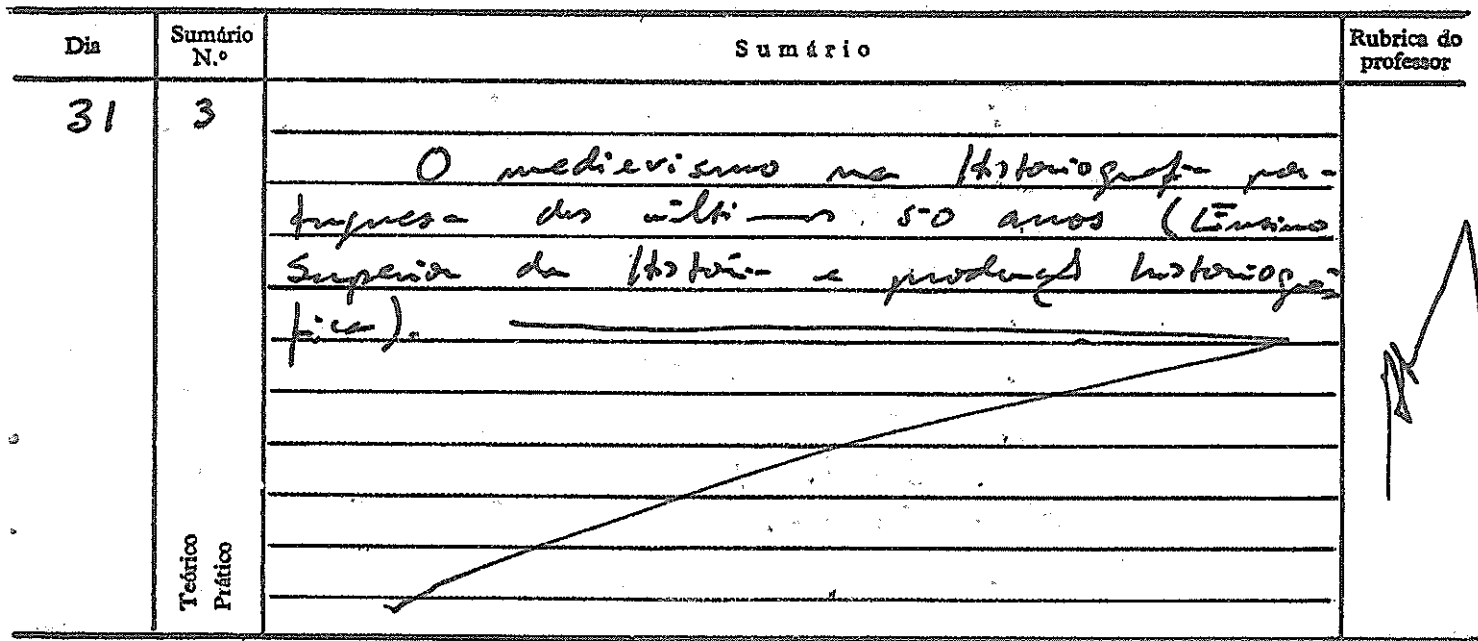 Dia
Sumário N.º
Sumário
Rubrica do professor
31
3
O medievismo na Historiografia por-
tuguesa dos últimos 50 anos (Ensino
Superior da História e produção historiográ-
fica).
Teórico
Prático